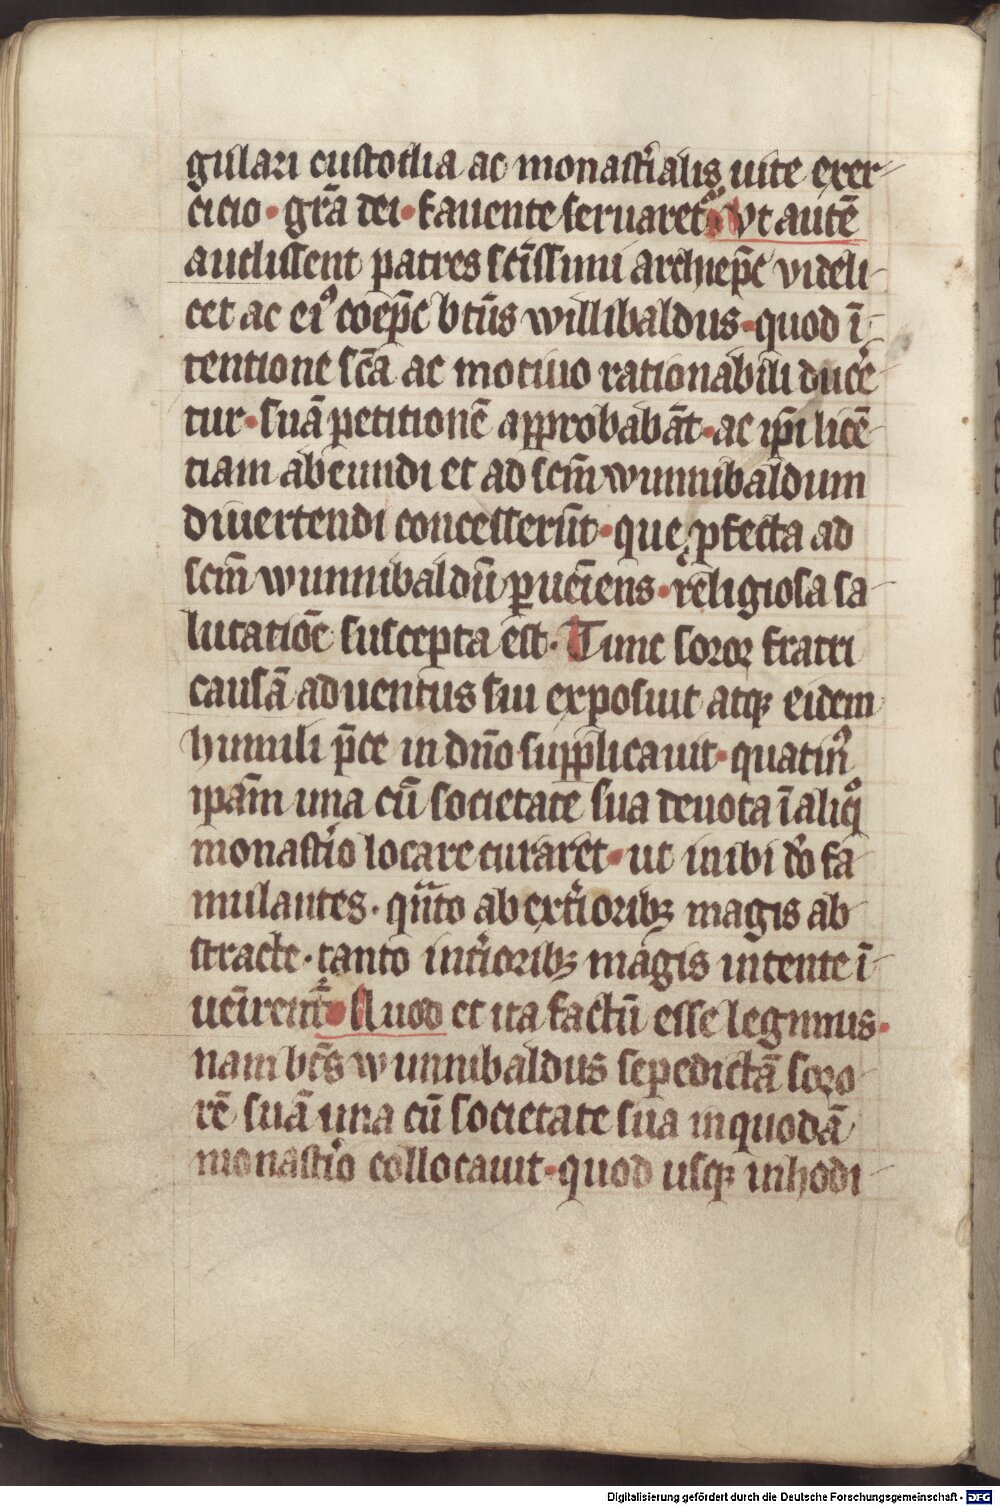 gulari custodia ac monast'ialis uite exer-
cicio • gr̄a dei • favente servaret᷑ • Vt autē
audissent patres sc̄issimi archiep̄c videli-
cet ac eiꝰ coep̄c b̄tūs willibaldus • quod ī-
tentione sc̄a ac motiuo rationabili duce᷑-
tur • suā petitionē approbabāt • ac ip̄i licē-
tiam abeundi et ad scm̄ wunnibaldum
divertendi concesserūt • que ꝓfecta ad
scm̄ wunnibaldū ꝑuēiens • religiosa sa-
lutatiōe suscepta est • Tunc soror fratri
causā adventus sui exposuit atqꝫ eidem
humili p̄ce in dn̄o supplicavit • quatinꝰ
ip̄am una cū societate sua devota ī aliqͦ
monast'io locare curaret • ut inibi dō fa-
mulantes • qn̄to ab ext'ioribꝫ magis ab-
stracte • tanto int'ioribꝫ magis intente ī-
ueīrent᷑ • Quod et ita factū esse legimus •
nam b̄cs wunnibaldus sepedictā soro-
rē suā una cū societate sua in quodā
monast'io collocavit • quod usqꝫ in hodi-
Digitalisierung gefördert durch die Deutsche Forschungsgemeinschaft - DFG